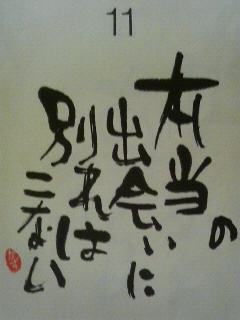 11
本当の
出会いに
別れは
こない